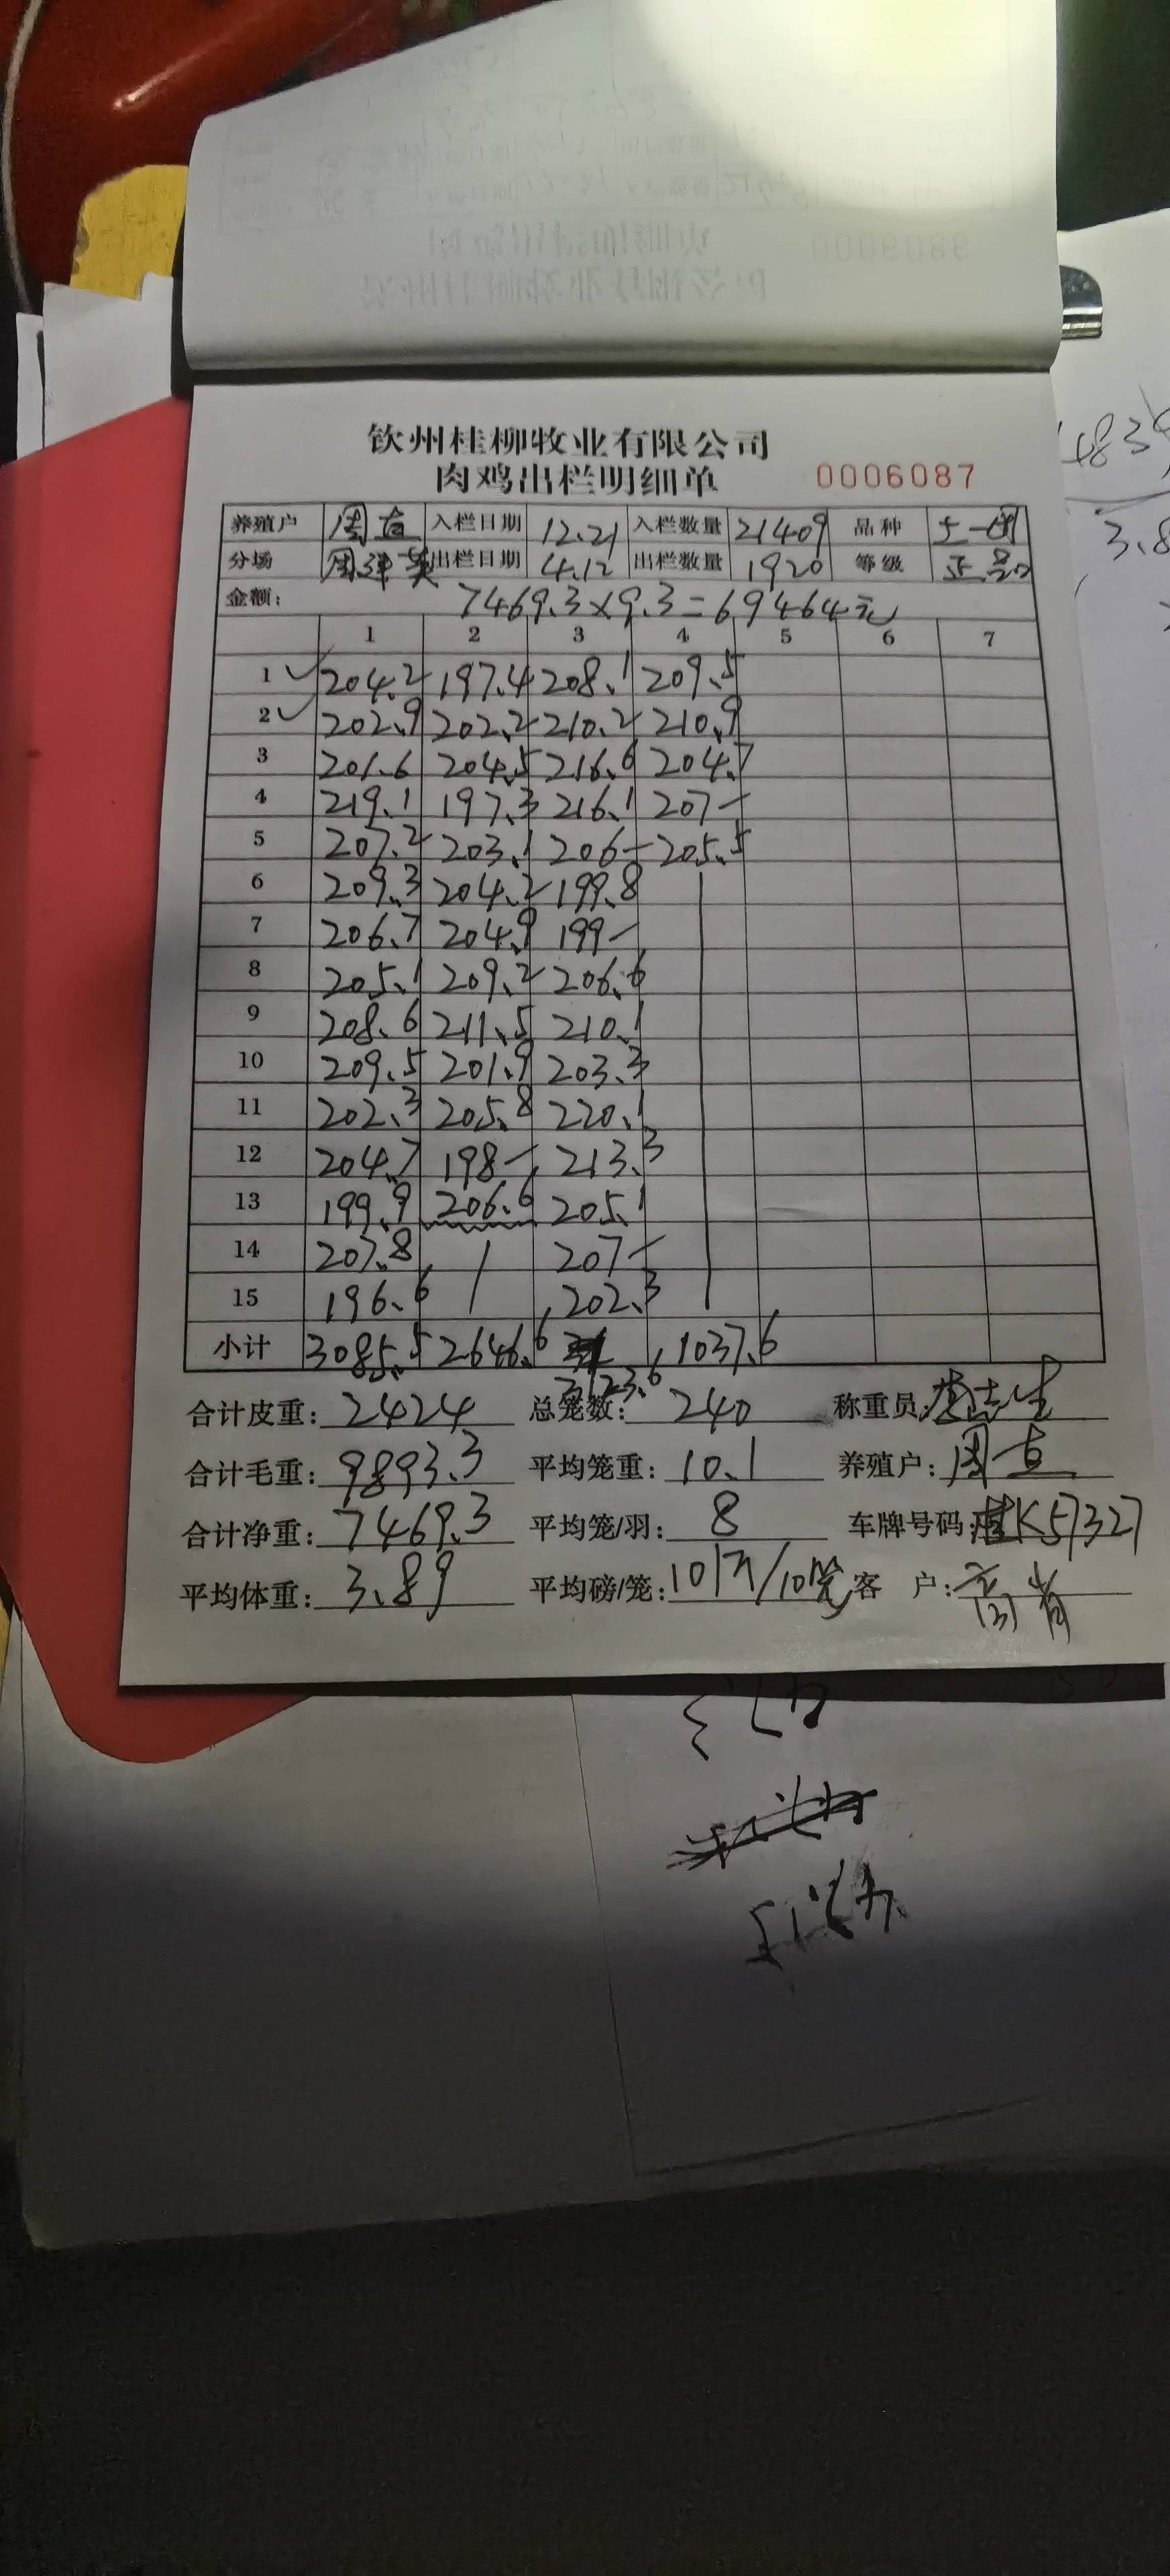 钦州桂柳牧业有限公司
肉鸡出栏明细单 0006087
养殖户 周直 入栏日期 12.21 入栏数量 21409 品种 土一
分场 周 出栏日期 4.12 出栏数量 1920 等级 正品
金额: 7469.3×9.3=69464元
1 2 3 4 5 6 7
1 204.2 197.4 208.1 209.5
2 202.9 202.2 210.2 210.9
3 201.6 204.5 216.6 204.7
4 219.1 197.3 216.1 207-
5 207.2 203.1 206- 205.5
6 209.3 204.2 199.8
7 206.7 204.9 199-
8 205.1 209.2 206.6
9 208.6 211.5 210.1
10 209.5 201.9 203.3
11 202.3 205.8 220.1
12 204.7 198- 213.3
13 199.9 206.6 205.1
14 207.8 207-
15 196.6 202.3
小计 3085.5 2646.6 3123.6 1037.6
合计皮重: 2424 总笼数: 240 称重员:
合计毛重: 9893.3 平均笼重: 10.1 养殖户: 周直
合计净重: 7469.3 平均笼/羽: 8 车牌号码: 桂K57327
平均体重: 3.89 平均磅/笼: 101斤/10笼 客 户: